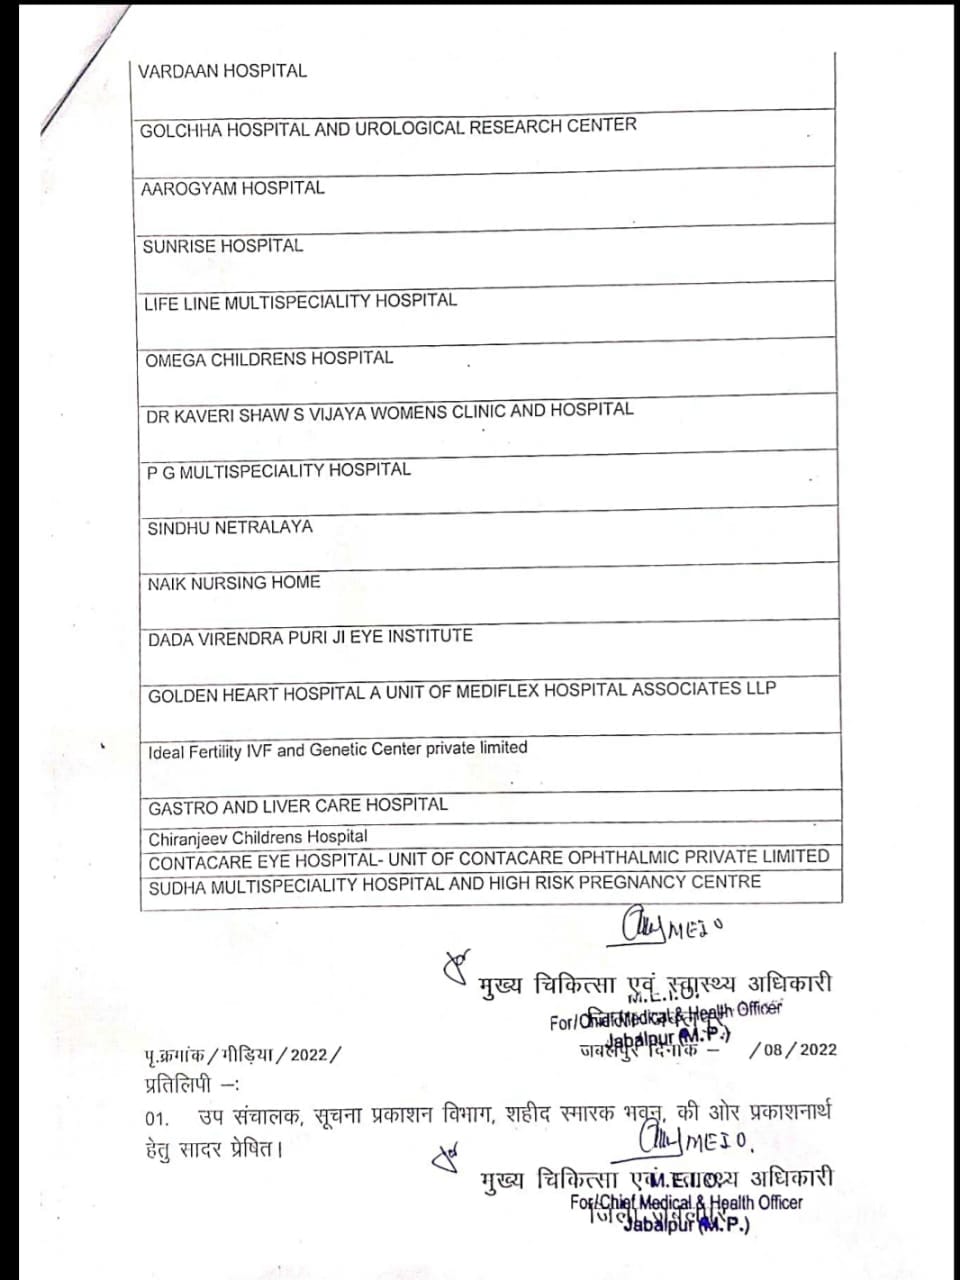 VARDAAN HOSPITAL
GOLCHHA HOSPITAL AND UROLOGICAL RESEARCH CENTER
AAROGYAM HOSPITAL
SUNRISE HOSPITAL
LIFE LINE MULTISPECIALITY HOSPITAL
OMEGA CHILDRENS HOSPITAL
DR KAVERI SHAW S VIJAYA WOMENS CLINIC AND HOSPITAL
P G MULTISPECIALITY HOSPITAL
SINDHU NETRALAYA
NAIK NURSING HOME
DADA VIRENDRA PURI JI EYE INSTITUTE
GOLDEN HEART HOSPITAL A UNIT OF MEDIFLEX HOSPITAL ASSOCIATES LLP
Ideal Fertility IVF and Genetic Center private limited
GASTRO AND LIVER CARE HOSPITAL
Chiranjeev Childrens Hospital
CONTACARE EYE HOSPITAL- UNIT OF CONTACARE OPHTHALMIC PRIVATE LIMITED
SUDHA MULTISPECIALITY HOSPITAL AND HIGH RISK PREGNANCY CENTRE
MEIO
मुख्य चिकित्सा एवं स्वास्थ्य अधिकारी
M.E.I.O.
For/Chief Medical & Health Officer
Jabalpur (M.P.)
पृ.क्रमांक/मीड़िया/2022/ जबलपुर दिनांक – /08/2022
प्रतिलिपी –:
01. उप संचालक, सूचना प्रकाशन विभाग, शहीद स्मारक भवन, की ओर प्रकाशनार्थ
हेतु सादर प्रेषित।
MEIO.
मुख्य चिकित्सा एवं स्वास्थ्य अधिकारी
M.E.I.O.
For/Chief Medical & Health Officer
जिला जबलपुर
Jabalpur (M.P.)